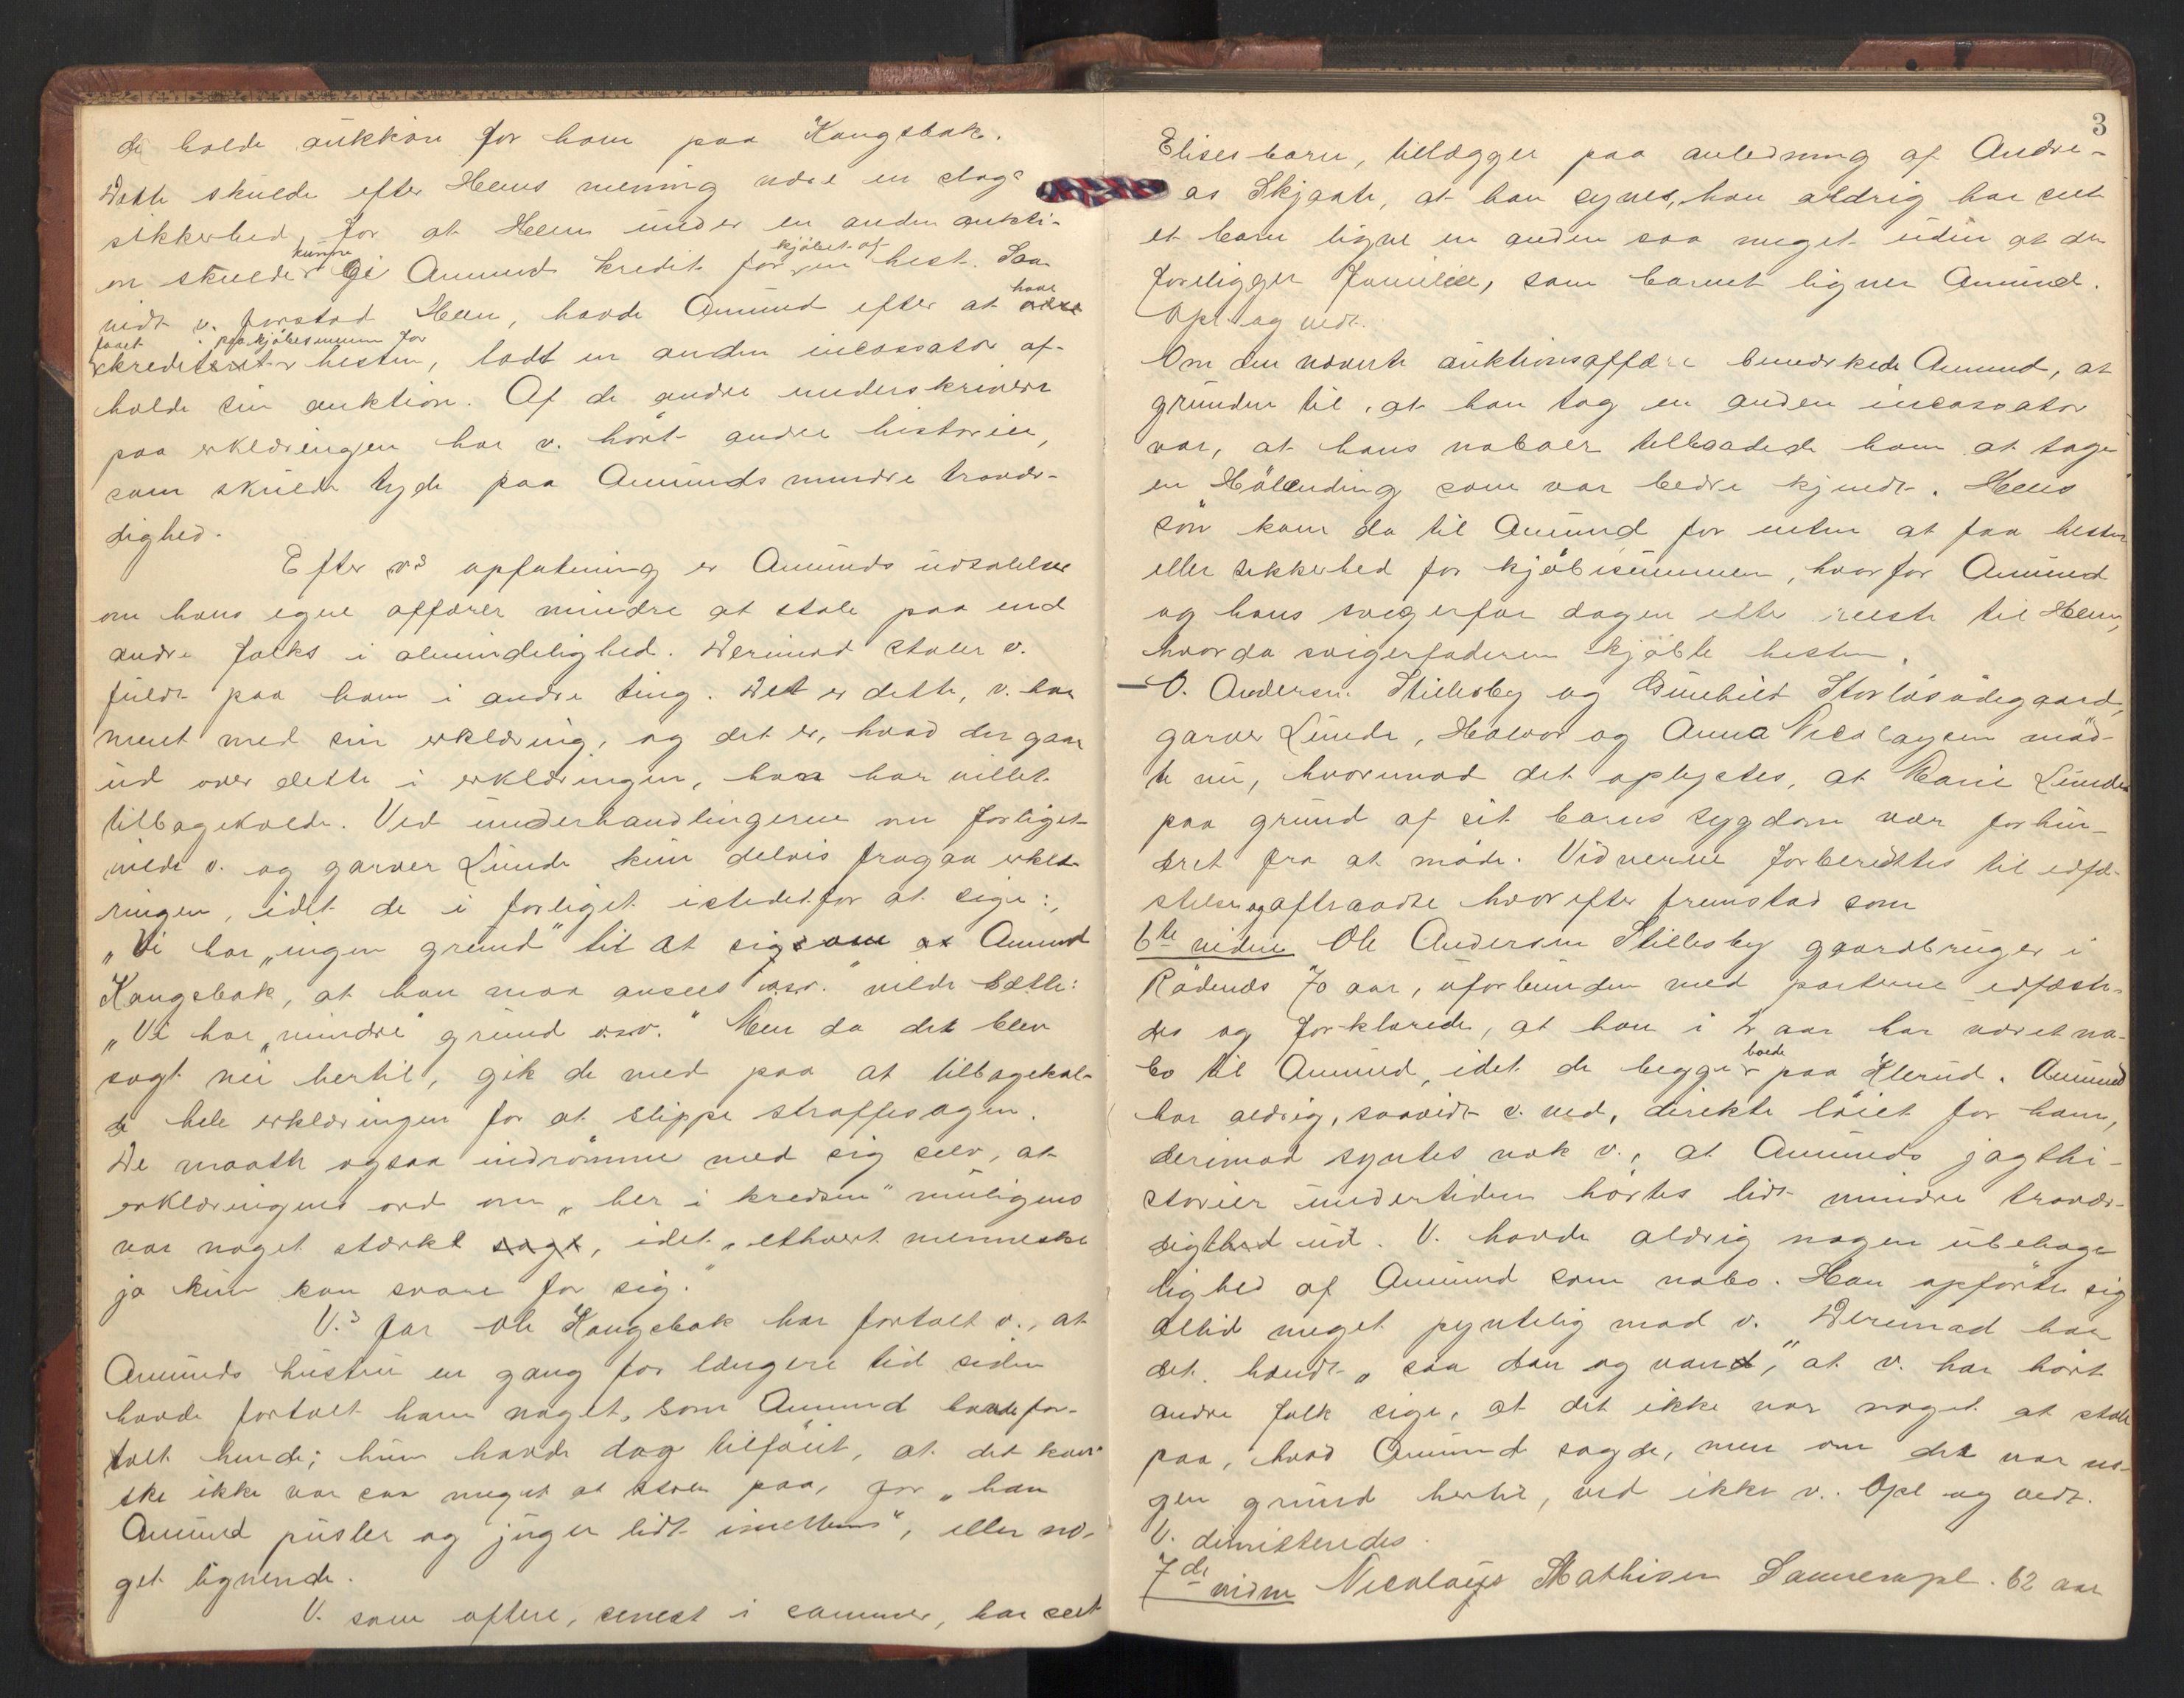 de holde aukkion for ham paa Kangsbak.
Dette skulde efter Heens mening være en slags
sikkerhed, for at Heen under en anden aukti-
on skulde kunne gi Amund kredit for kjöbet af en hest. Saa
vidt v. forstod Heen, havde Amund efter at have
faaet kredit paa kjöbesummen for hesten, ladt en anden incassator af-
holde sin auktion. Af de andre underskrivere
paa erklæringen har v. hört andre historier,
som skulde tyde paa Amunds mindre trovær-
dighed.
Efter v's opfatning er Amunds udsalelser
om hans egne affærer mindre at stole paa end
andre folks i almindelighed. Derimod stoler v.
fuldt paa ham i andre ting. Det er dette, v. har
ment med sin erklæring, og det er, hvad der gaar
ud over dette i erklæringen, han har villet
tilbagekalde. Ved underhandlingerne om forliget
vilde v. og garver Lunde kun delvis fragaa erklæ-
ringen, idet de i forliget istedetfor at sige:
"Vi har "ingen grund" til at sige om Amund
Kangsbak, at han maa ansees osv." vilde sætte:
"Vi har "mindre" grund osv." Men da det blev
sagt nei hertil, gik de med paa at tilbagekal-
de hele erklæringen for at slippe straffesagen.
De maatte ogsaa indrömme med sig selv, at
erklæringens ord om "her i kredsen" muligens
var noget stærkt sagt, idet "ethvert menneske
jo kun kan svare for sig."
V.s far Ole Kangsbak har fortalt v., at
Amunds hustru en gang for længere tid siden
havde fortalt ham noget, som Amund havde for-
talt hende; hun havde dog tilföiet, at det kan-
ske ikke var saa meget at stole paa, for "han
Amund pusler og juger lidt imellem", eller no-
get lignende.
V. som oftere, senest i sommer, har seet
3
Elises barn, tillægger paa anledning af Andre-
as Skjaate, at han synes, han aldrig har seet
et barn ligne en anden saa meget uden at der
foreligger familie, som barnet ligner Amund.
Opl. og vedt.
Om den nævnte auktionsaffære bemærkede Amund, at
grunden til, at han tog en anden incassator
var, at hans naboer tilraadede ham at tage
en Hölending som var bedre kjendt. Heens
sön kom da til Amund for enten at faa hesten
eller sikkerhed for kjöbesummen, hvorfor Amund
og hans svigerfar dagen efter reiste til Heen,
hvor da svigerfaderen kjöbte hesten.
— O. Andersen Stillesby og Gunhild Storlösödegaard,
garver Lunde, Halvor og Anna Nicolaysen möd-
te nu, hvorimod det oplystes, at Marie Lunde
paa grund af sit barns sygdom var forhin-
dret fra at möde. Vidnerne forberedtes til edfæ-
stelse og aftraadte hvorefter fremstod som
6te vidne Ole Andersen Stillesby gaardbruger i
Rödenes 70 aar, uforbunden med parterne edfæste-
des og forklarede, at han i 2 aar har været na-
bo til Amund, idet de begge boede paa Klerud. Amund
har aldrig, saavidt v. ved, direkte löiet for ham,
derimod syntes nok v., at Amunds jagthi-
storier undertiden hörtes lidt mindre trovær-
dig ud. V. havde aldrig nogen ubehage-
lighed af Amund som nabo. Han opförte sig
altid meget pyntelig mod v. Derimod har
det hændt "saa dan og vand", at v. har hört
andre folk sige, at det ikke var noget at stole
paa, hvad Amund sagde, men om det var no-
gen grund hertil, ved ikke v. Opl og vedt.
V. dimitteredes.
7de vidne Nicolays Mathisen Sannerøpl. 62 aar